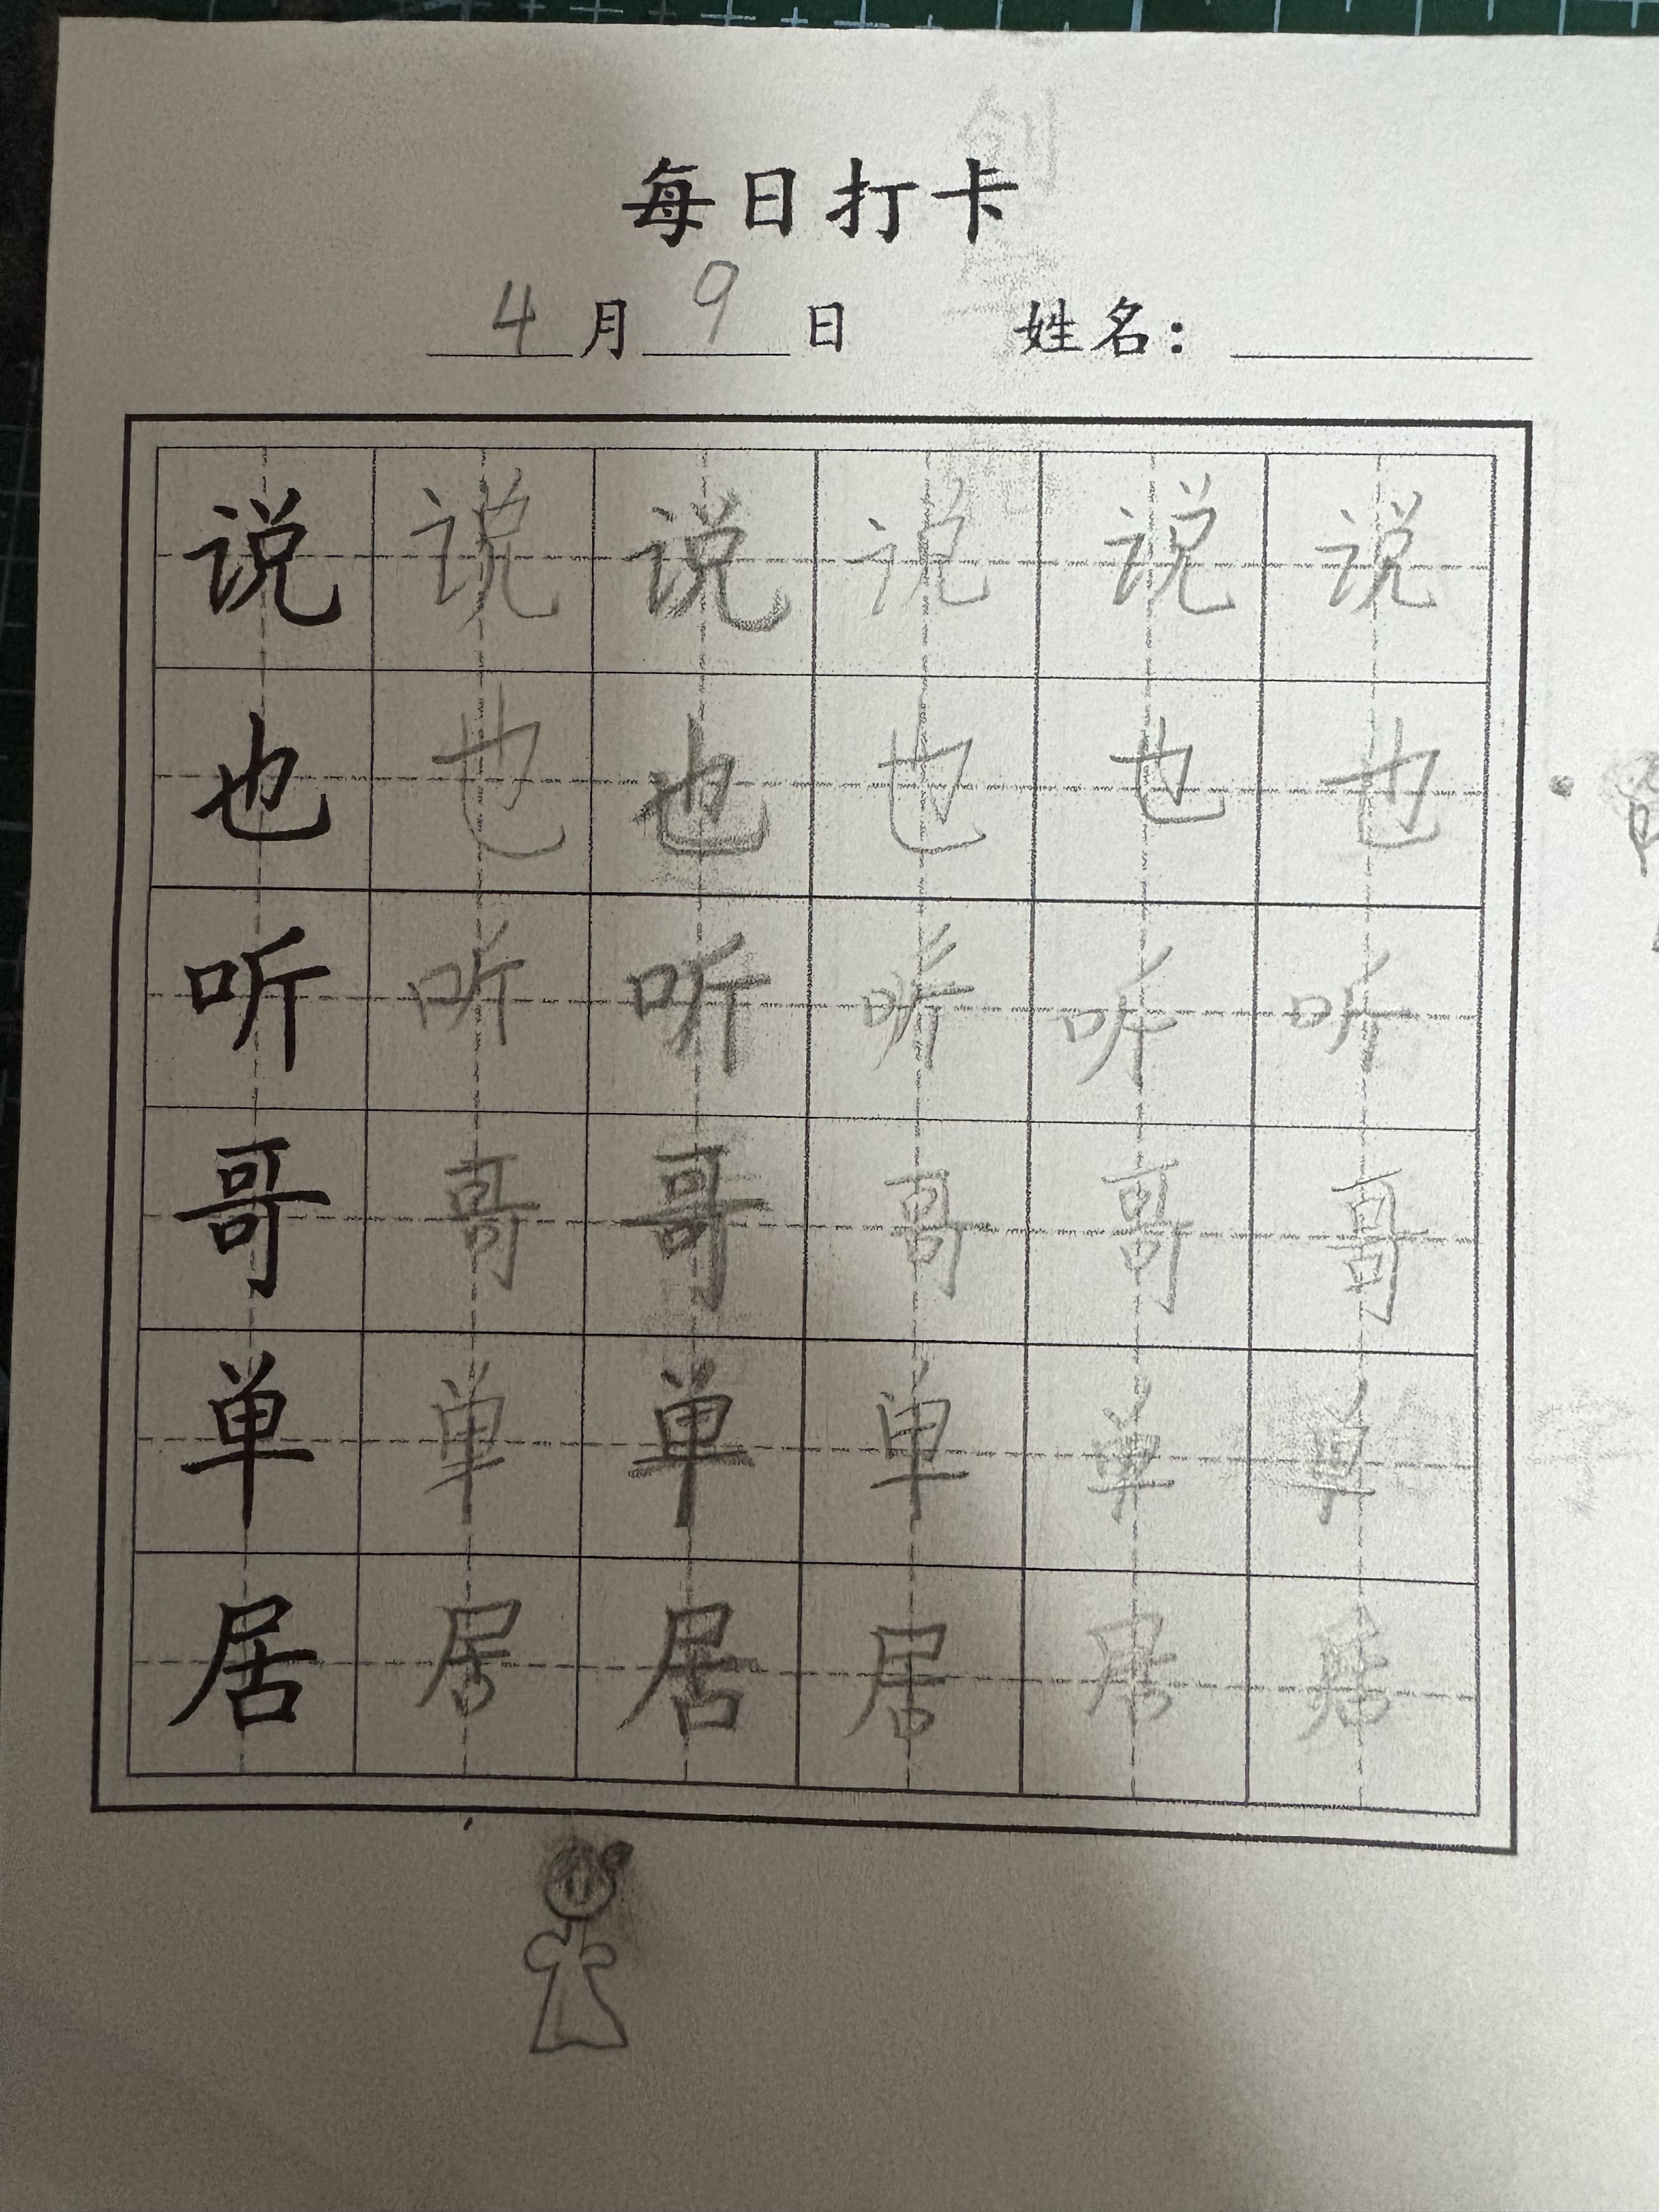 每日打卡
4月9日 姓名：
说 说 说 说 说 说
也 也 也 也 也 也
听 听 听 听 听 听
哥 哥 哥 哥 哥 哥
单 单 单 单 单 单
居 居 居 居 居 居